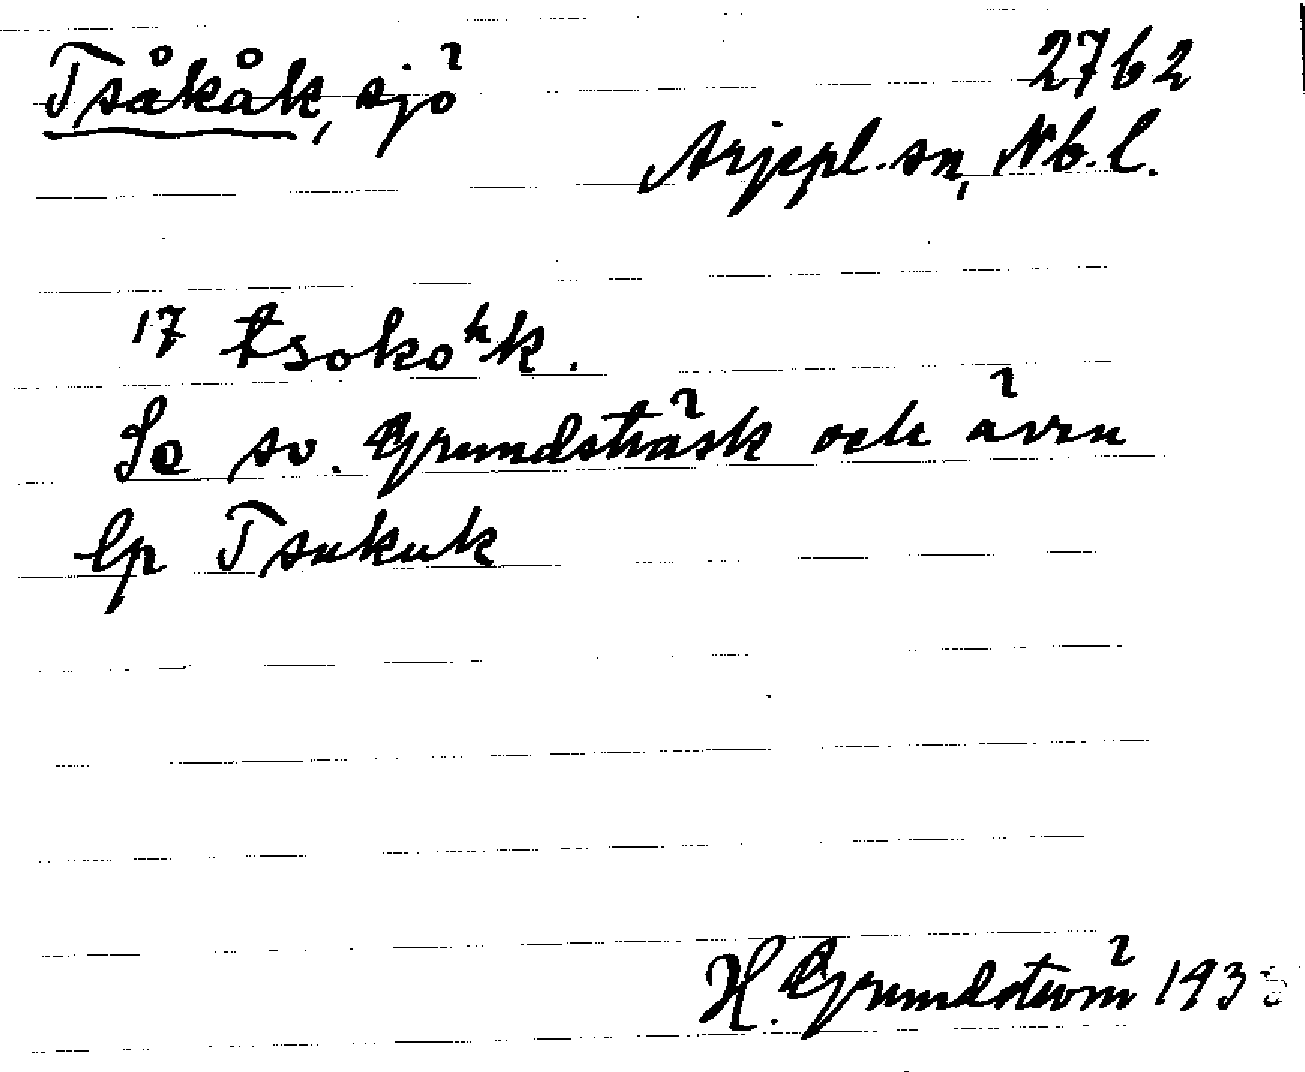 Tsåkåk, sjö 2762
Arjepl. sn, Nb. l.
17 tsokoʰk.
Se sv. Grundsträsk och även
lp Tsukuk
H. Grundström